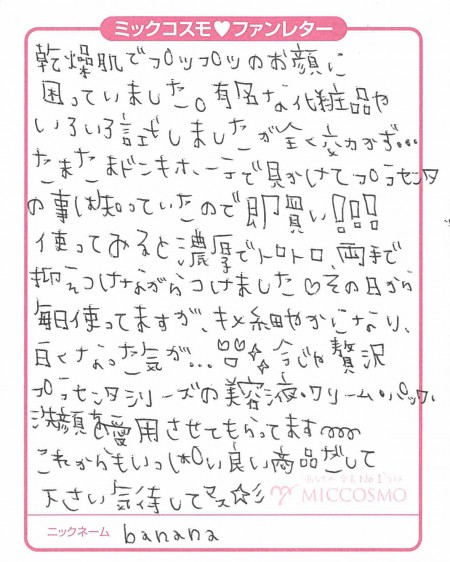 ミックコスモ♥ファンレター
乾燥肌でプツプツのお顔に
困っていました。有名な化粧品や
いろいろ試しましたが全く効かず…
たまたまドンキホーテで見かけてプラセンタ
の事は知っていたので即買い!!!
使ってみると濃厚でトロトロ、両手で
抑えつけながらつけました♡その日から
毎日使ってますが、キメ細やかになり、
白くなった気が…!!今じゃ贅沢
プラセンタシリーズの美容液・クリーム・パック・
洗顔を愛用させてもらってます
これからもいっぱい良い商品だして
下さい気待してマス☆彡
MICCOSMO
ニックネーム banana